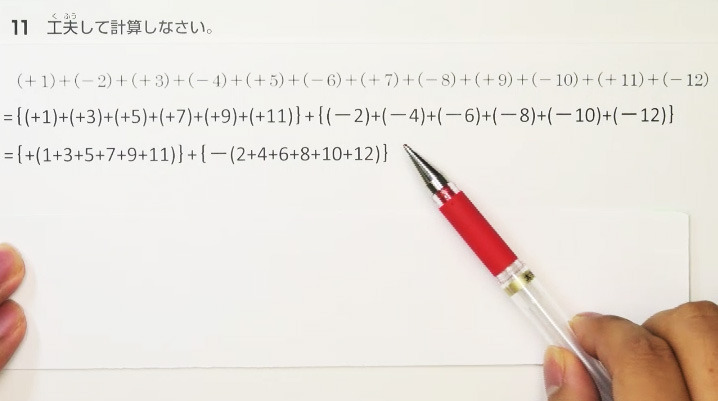 11 工夫して計算しなさい。
くふう
(+1)+(−2)+(+3)+(−4)+(+5)+(−6)+(+7)+(−8)+(+9)+(−10)+(+11)+(−12)
={(+1)+(+3)+(+5)+(+7)+(+9)+(+11)}+{(−2)+(−4)+(−6)+(−8)+(−10)+(−12)}
={+(1+3+5+7+9+11)}+{−(2+4+6+8+10+12)}